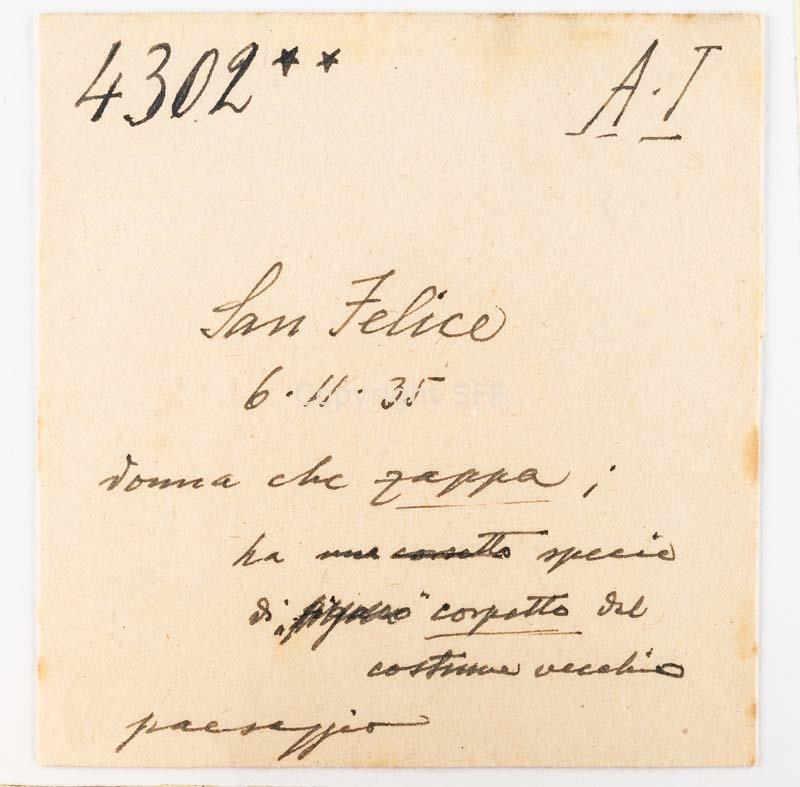 4302**
A·T
San Felice
6·11·35
donna che zappa;
ha una corsetto specie
di „figaro" corpetto del
costume vecchio
paesaggio
Copyright SFF